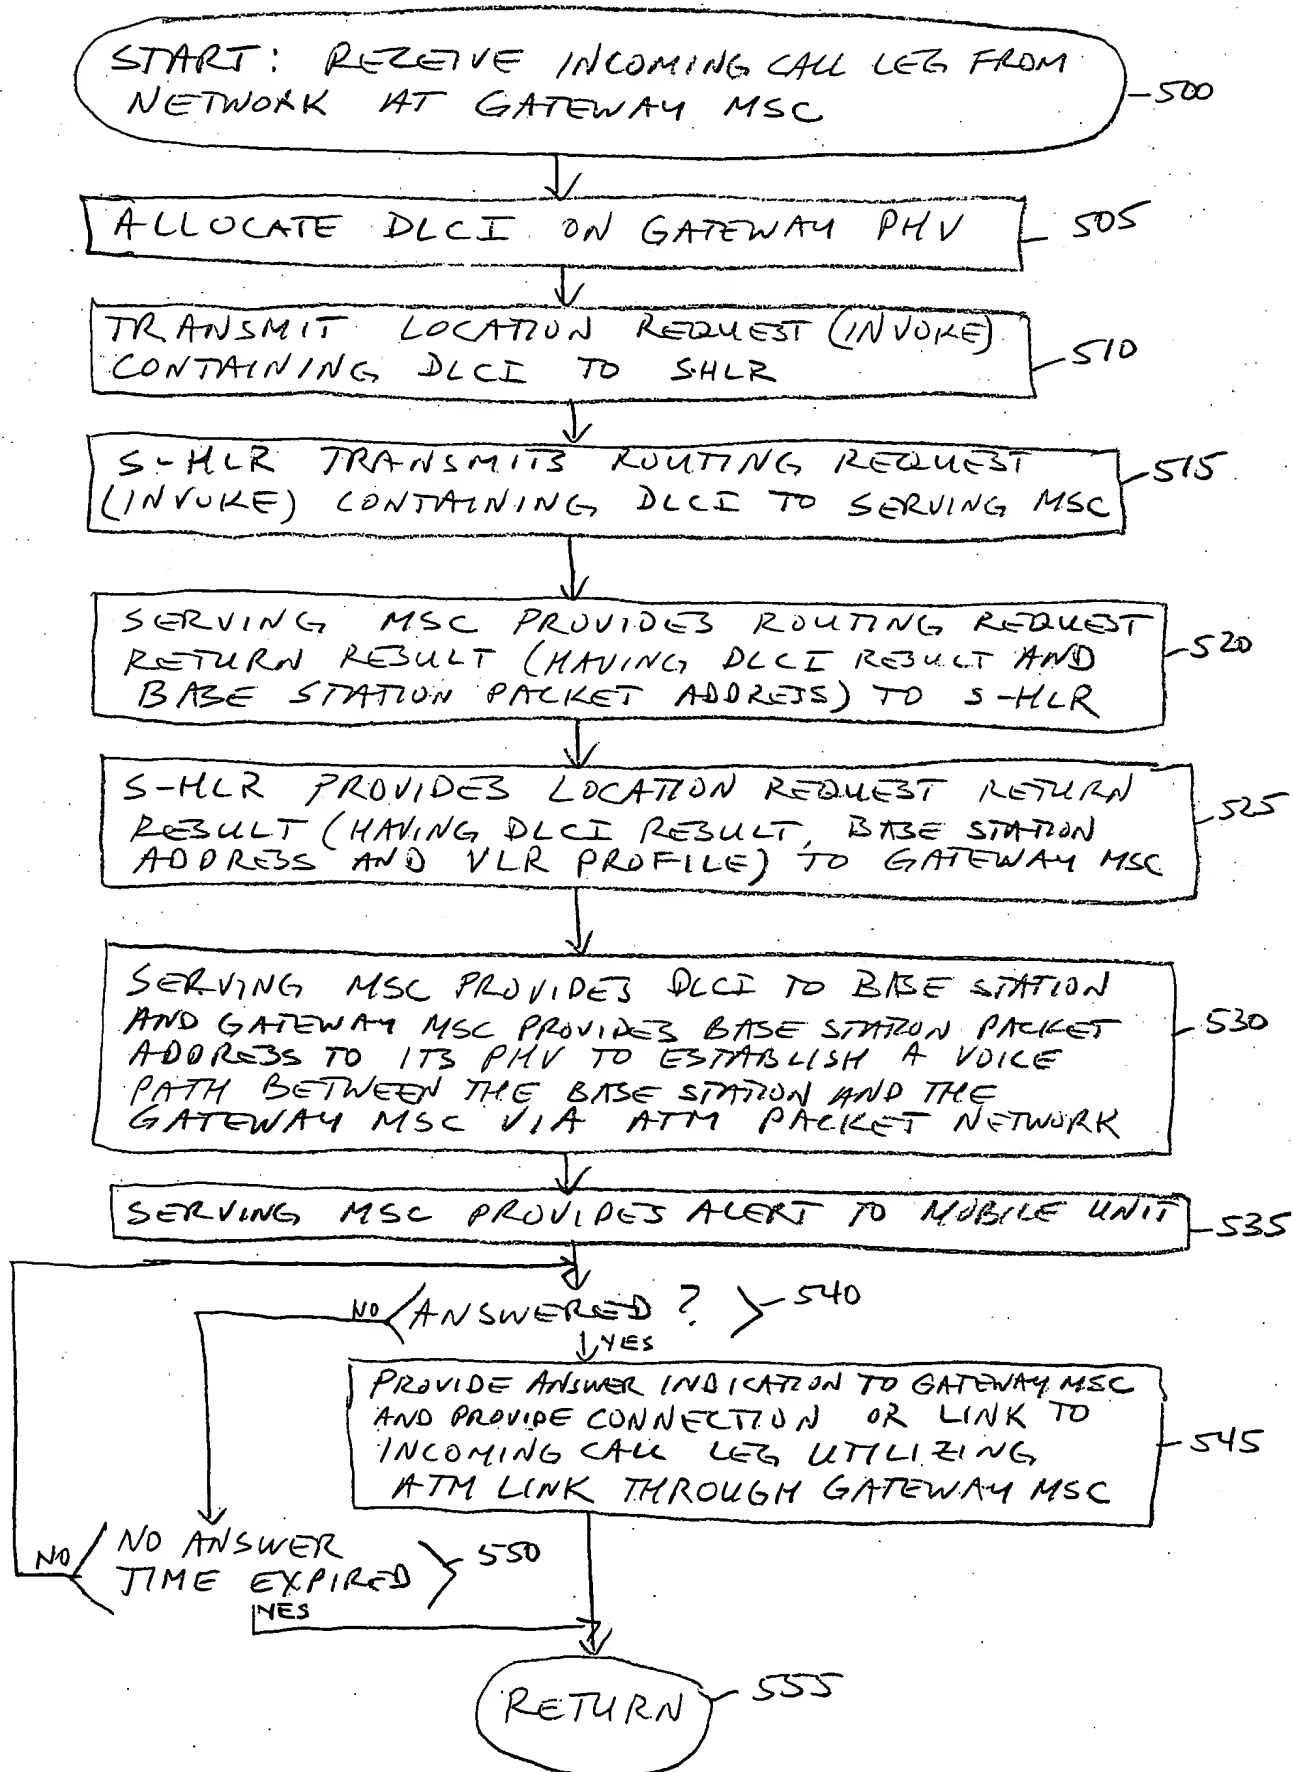 START: RECEIVE INCOMING CALL LEG FROM
NETWORK AT GATEWAY MSC
500
ALLOCATE DLCI ON GATEWAY PHV
505
TRANSMIT LOCATION REQUEST (INVOKE)
CONTAINING DLCI TO S-HLR
510
S-HLR TRANSMITS ROUTING REQUEST
(INVOKE) CONTAINING DLCI TO SERVING MSC
515
SERVING MSC PROVIDES ROUTING REQUEST
RETURN RESULT (HAVING DLCI RESULT AND
BASE STATION PACKET ADDRESS) TO S-HLR
520
S-HLR PROVIDES LOCATION REQUEST RETURN
RESULT (HAVING DLCI RESULT, BASE STATION
ADDRESS AND VLR PROFILE) TO GATEWAY MSC
525
SERVING MSC PROVIDES DLCI TO BASE STATION
AND GATEWAY MSC PROVIDES BASE STATION PACKET
ADDRESS TO ITS PHV TO ESTABLISH A VOICE
PATH BETWEEN THE BASE STATION AND THE
GATEWAY MSC VIA ATM PACKET NETWORK
530
SERVING MSC PROVIDES ALERT TO MOBILE UNIT
535
NO ANSWERED ? 540
YES
PROVIDE ANSWER INDICATION TO GATEWAY MSC
AND PROVIDE CONNECTION OR LINK TO
INCOMING CALL LEG UTILIZING
ATM LINK THROUGH GATEWAY MSC
545
NO
NO ANSWER
TIME EXPIRED
550
YES
RETURN
555